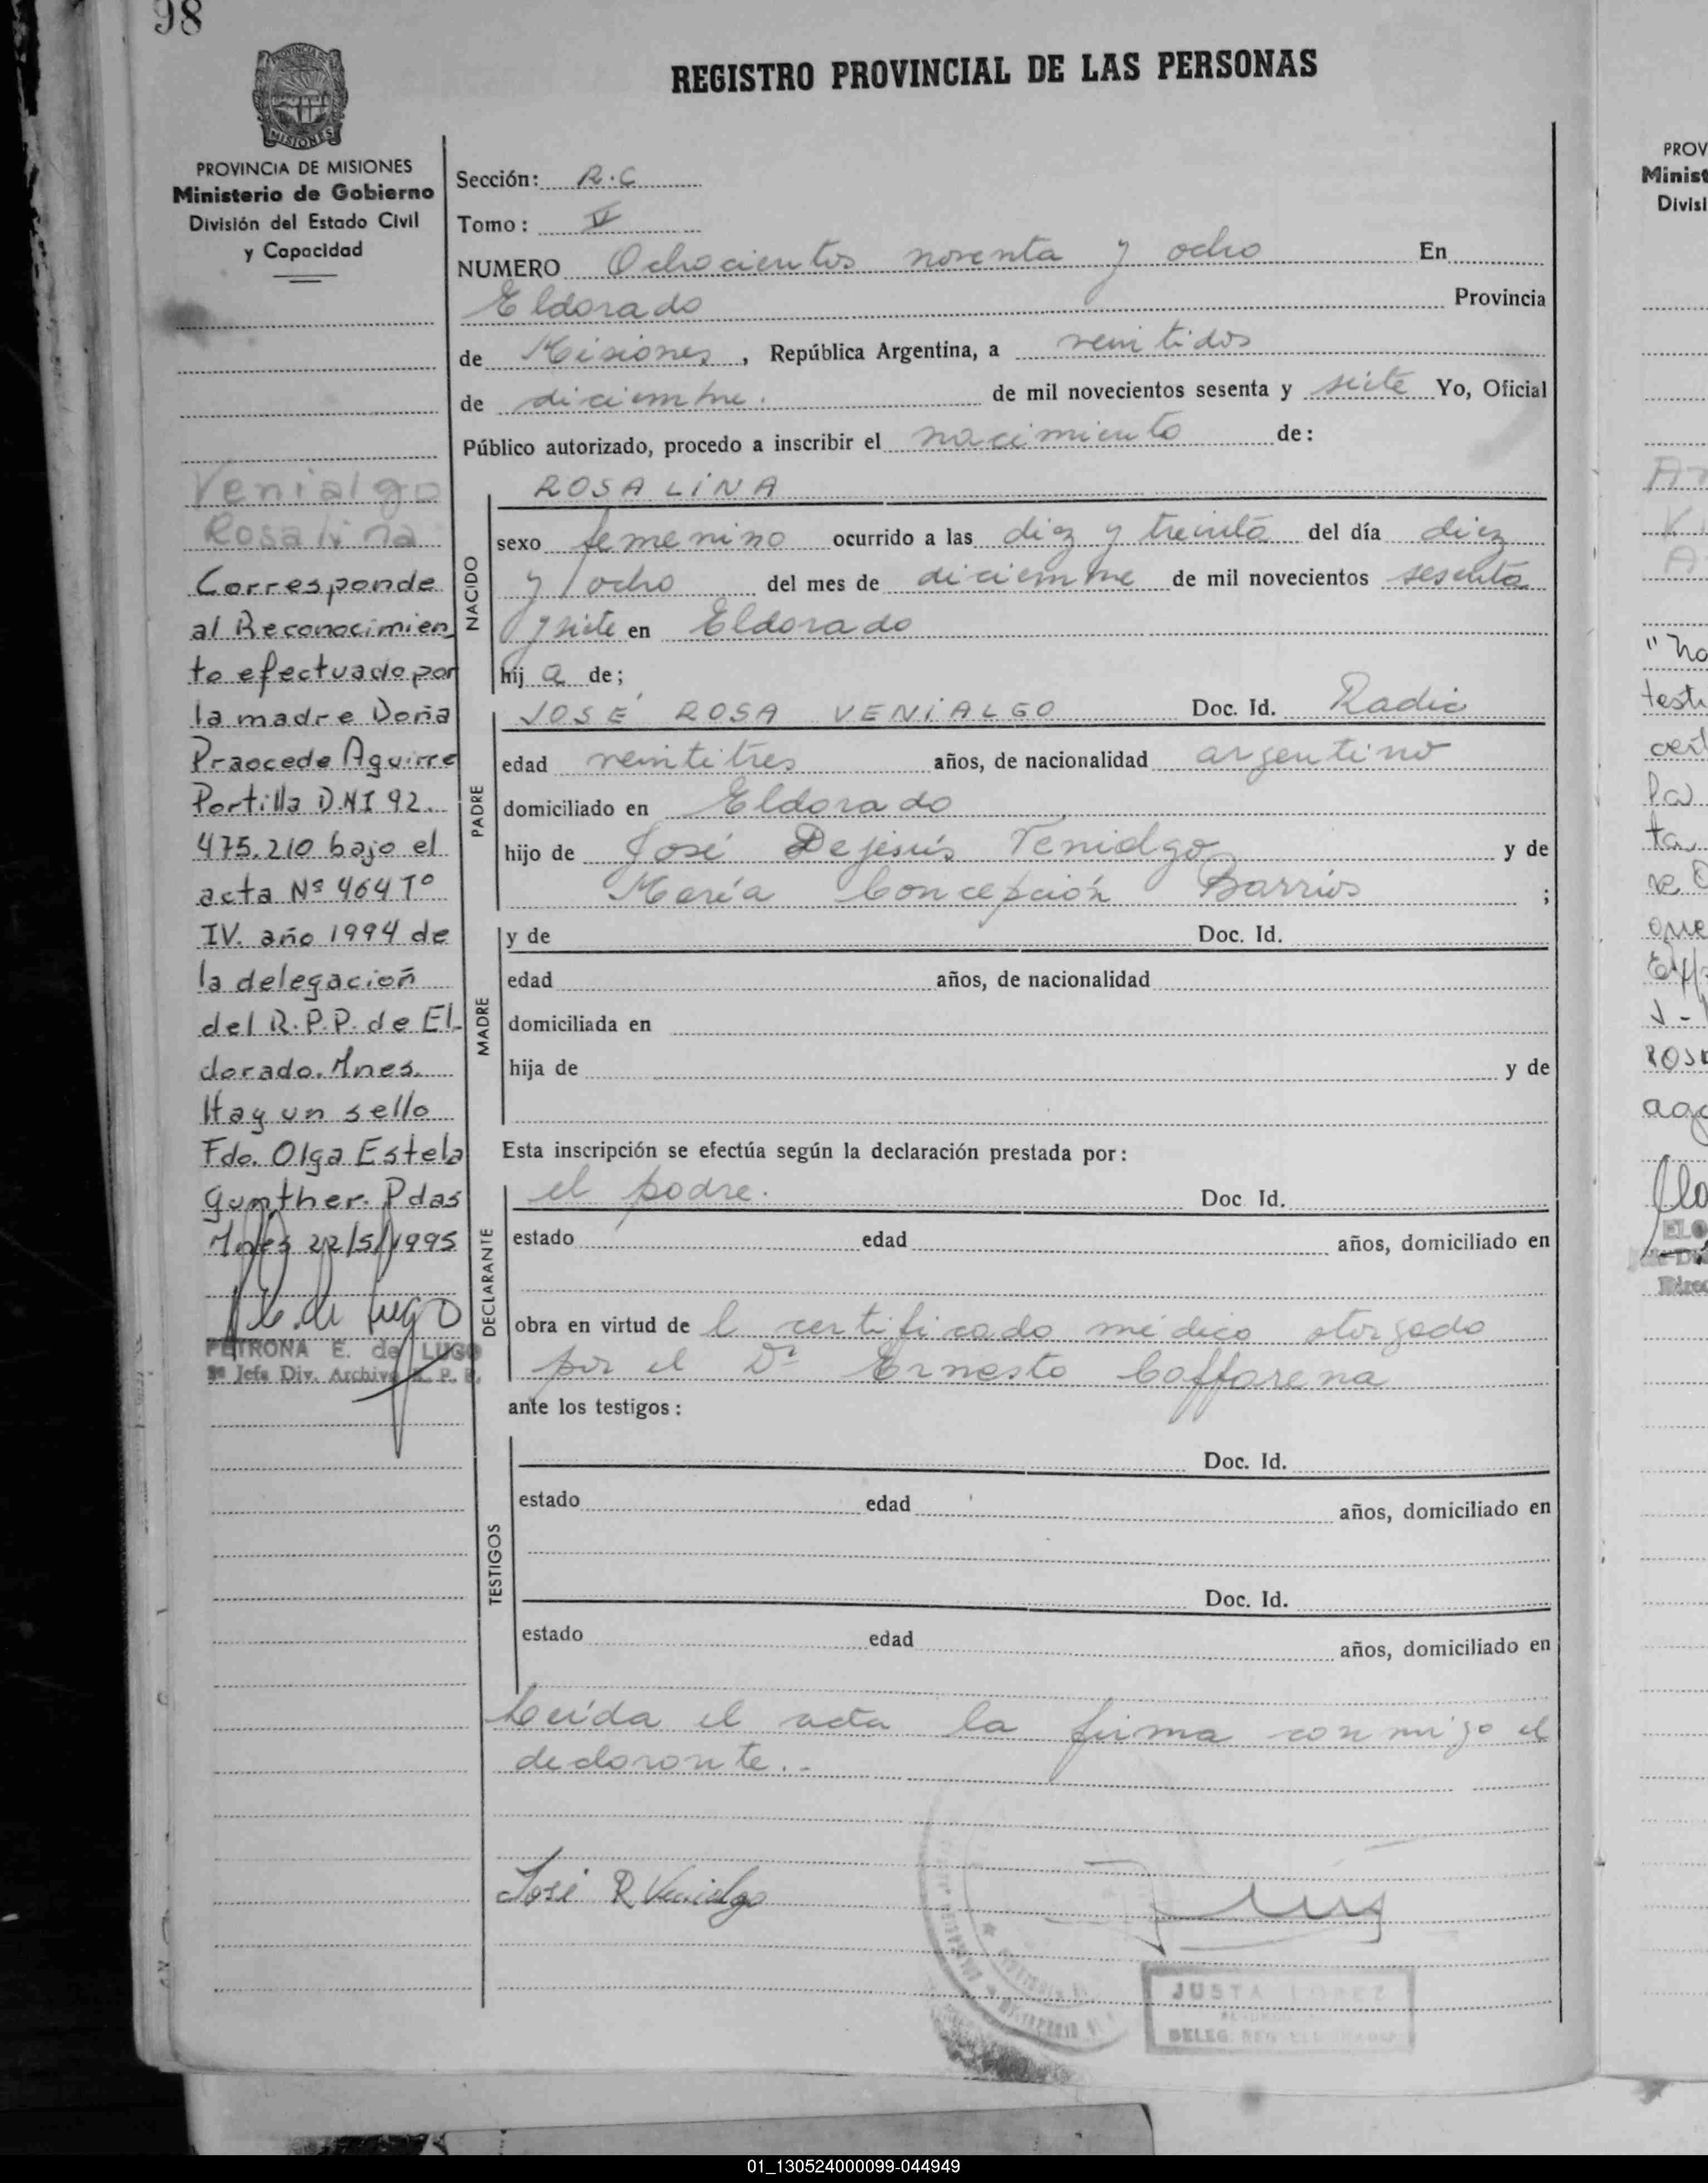 98
REGISTRO PROVINCIAL DE LAS PERSONAS
PROVINCIA DE MISIONES
Ministerio de Gobierno
División del Estado Civil
y Capacidad
Venialgo
Rosalina
Corresponde
al Reconocimien
to efectuado por
la madre Doña
Praocede Aguirre
Portilla D.N.I 92.
475.210 bajo el
acta Nº 464 Tº
IV. año 1994 de
la delegación
del R.P.P. de El-
dorado. Mnes.
Hay un sello
Fdo. Olga Estela
Gunther. Pdas
Mnes 22/5/1995
PETRONA E. de LUGO
Jefa Div. Archivo R. P. P.
Sección: R.C
Tomo: V
NUMERO Ochocientos noventa y ocho En
Eldorado Provincia
de Misiones, República Argentina, a veintidos
de diciembre. de mil novecientos sesenta y siete Yo, Oficial
Público autorizado, procedo a inscribir el nacimiento de:
ROSALINA
NACIDO
sexo femenino ocurrido a las diez y treinta del día diez
y ocho del mes de diciembre de mil novecientos sesenta
y siete en Eldorado
hij a de;
PADRE
JOSÉ ROSA VENIALGO Doc. Id. Radic
edad veintitres años, de nacionalidad argentino
domiciliado en Eldorado
hijo de José Dejesús Venialgo y de
María Concepción Barrios ;
MADRE
y de Doc. Id.
edad años, de nacionalidad
domiciliada en
hija de y de
Esta inscripción se efectúa según la declaración prestada por:
DECLARANTE
el padre. Doc Id.
estado edad años, domiciliado en
obra en virtud de l certificado médico otorgado
por el Dr Ernesto Caffarena
ante los testigos:
TESTIGOS
Doc. Id.
estado edad años, domiciliado en
Doc. Id.
estado edad años, domiciliado en
Leída el acta la firma conmigo el
declarante.-
José R Venialgo
JUSTA LOPEZ
DELEG. REG. ELDORADO
PROV
Minist
Divisi
01_130524000099-044949